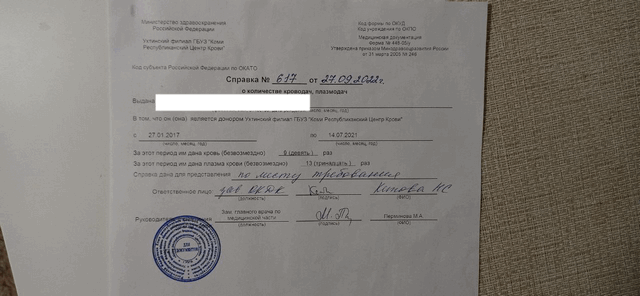 Министерство здравоохранения
Российской Федерации
Ухтинский филиал ГБУЗ "Коми
Республиканский Центр Крови"
Код формы по ОКУД
Код учреждения по ОКПО
Медицинская документация
форма № 448-05/у
Утверждена приказом Минздравсоцразвития России
от 31 марта 2005 № 246
Код субъекта Российской Федерации по ОКАТО
Справка № 617 от 27.09.2022г.
о количестве кроводач, плазмодач
Выдана
число, месяц, год)
В том, что он (она) является донором Ухтинский филиал ГБУЗ "Коми Республиканский Центр Крови"
с 27.01.2017 по 14.07.2021
(число, месяц, год) (число, месяц, год)
За этот период им дана кровь (безвозмездно) 9 (девять) раз
За этот период им дана плазма крови (безвозмездно) 13 (тринадцать) раз
Справка дана для представления по месту требования
Ответственное лицо: зав
(должность) (подпись) (ФИО)
Руководитель
Зам. главного врача по
медицинской части
Пермякова М.А.
(должность) (подпись) (ФИО)